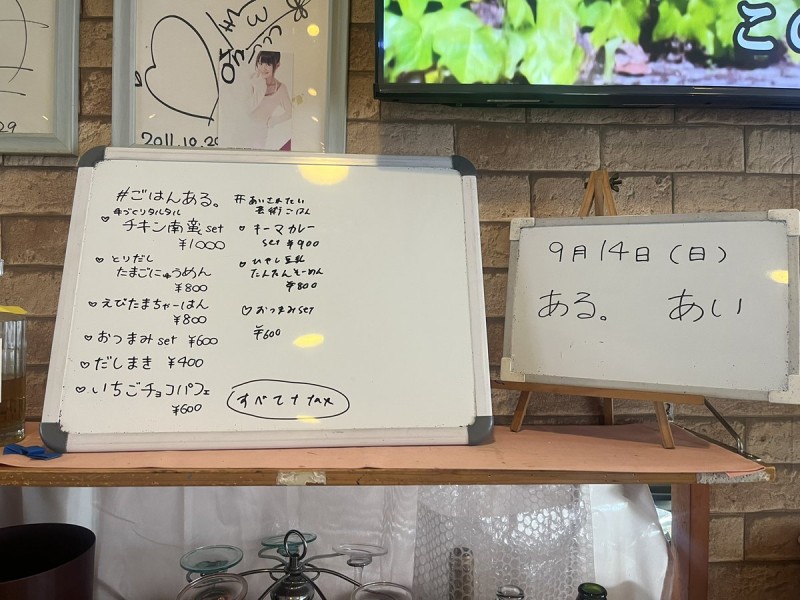 2011.10.29
この
#ごはんある。
手づくりタルタル
チキン南蛮set
¥1000
とりだし
たまごにゅうめん
¥800
えびたまちゃーはん
¥800
おつまみset ¥600
だしまき ¥400
いちごチョコパフェ
¥600
#あいされたい
芸術ごはん
キーマカレー
set ¥900
ひやし豆乳
たんたんそーめん
¥800
おつまみset
¥600
すべて+tax
9月14日(日)
ある。 あい